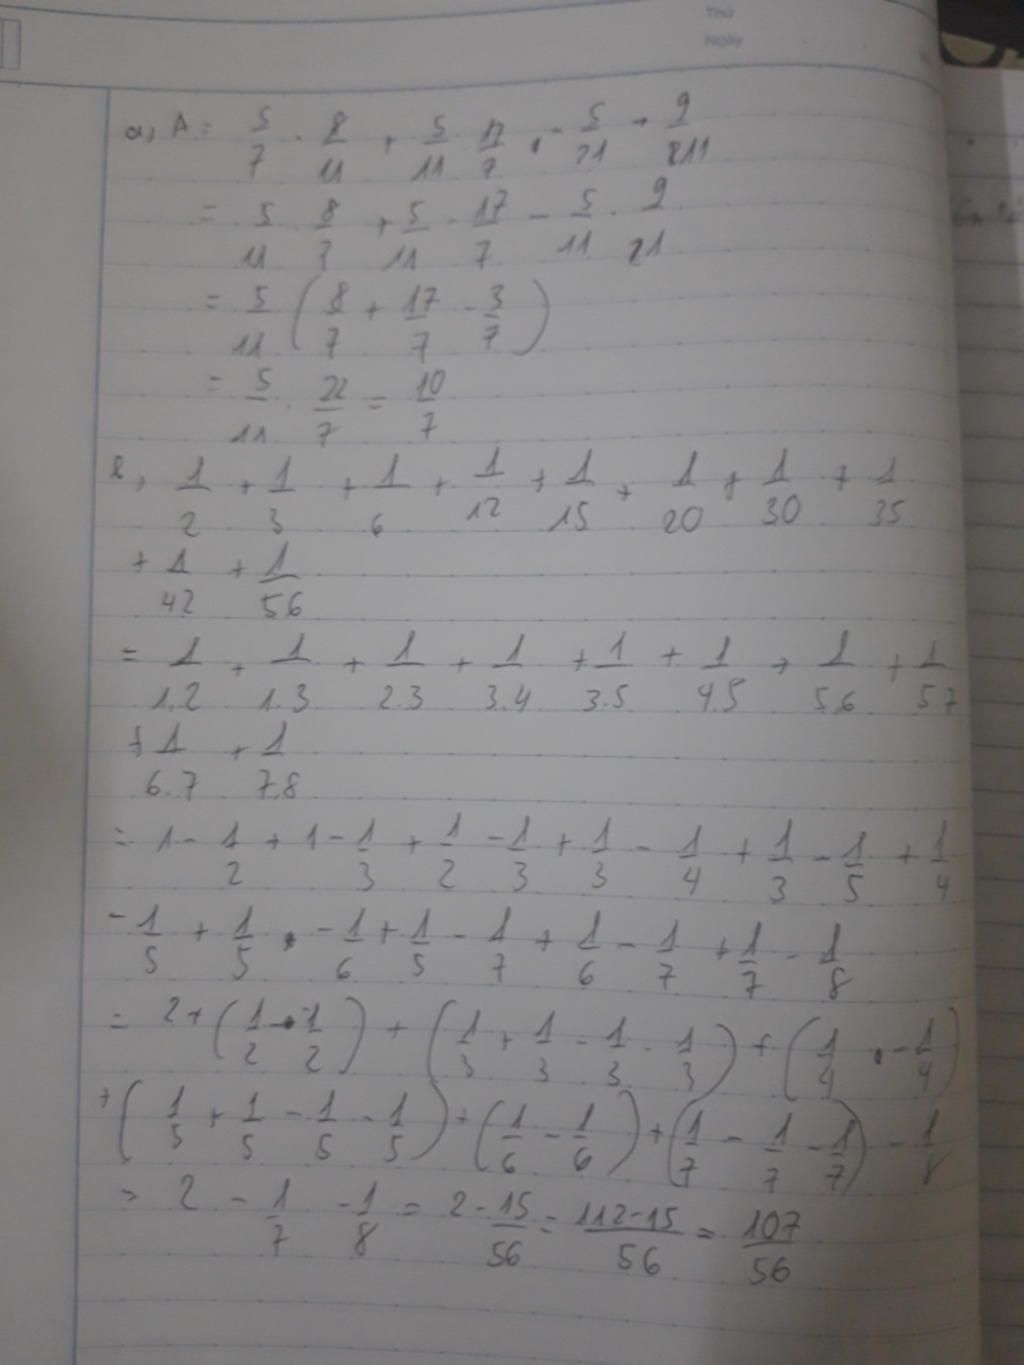 Thứ
Ngày
a, A = 5/7 . 8/11 + 5/11 . 17/7 - 5/21 . 9/11
= 5/11 . 8/7 + 5/11 . 17/7 - 5/11 . 9/21
= 5/11 ( 8/7 + 17/7 - 3/7 )
= 5/11 . 22/7 = 10/7
b, 1/2 + 1/3 + 1/6 + 1/12 + 1/15 + 1/20 + 1/30 + 1/35
+ 1/42 + 1/56
= 1/1.2 + 1/1.3 + 1/2.3 + 1/3.4 + 1/3.5 + 1/4.5 + 1/5.6 + 1/5.7
+ 1/6.7 + 1/7.8
= 1 - 1/2 + 1 - 1/3 + 1/2 - 1/3 + 1/3 - 1/4 + 1/3 - 1/5 + 1/4
- 1/5 + 1/5 - 1/6 + 1/5 - 1/7 + 1/6 - 1/7 + 1/7 - 1/8
= 2 + ( 1/2 - 1/2 ) + ( 1/3 + 1/3 - 1/3 - 1/3 ) + ( 1/4 - 1/4 )
+ ( 1/5 + 1/5 - 1/5 - 1/5 ) + ( 1/6 - 1/6 ) + ( 1/7 - 1/7 - 1/7 ) - 1/8
= 2 - 1/7 - 1/8 = 2 - 15/56 = 112-15/56 = 107/56